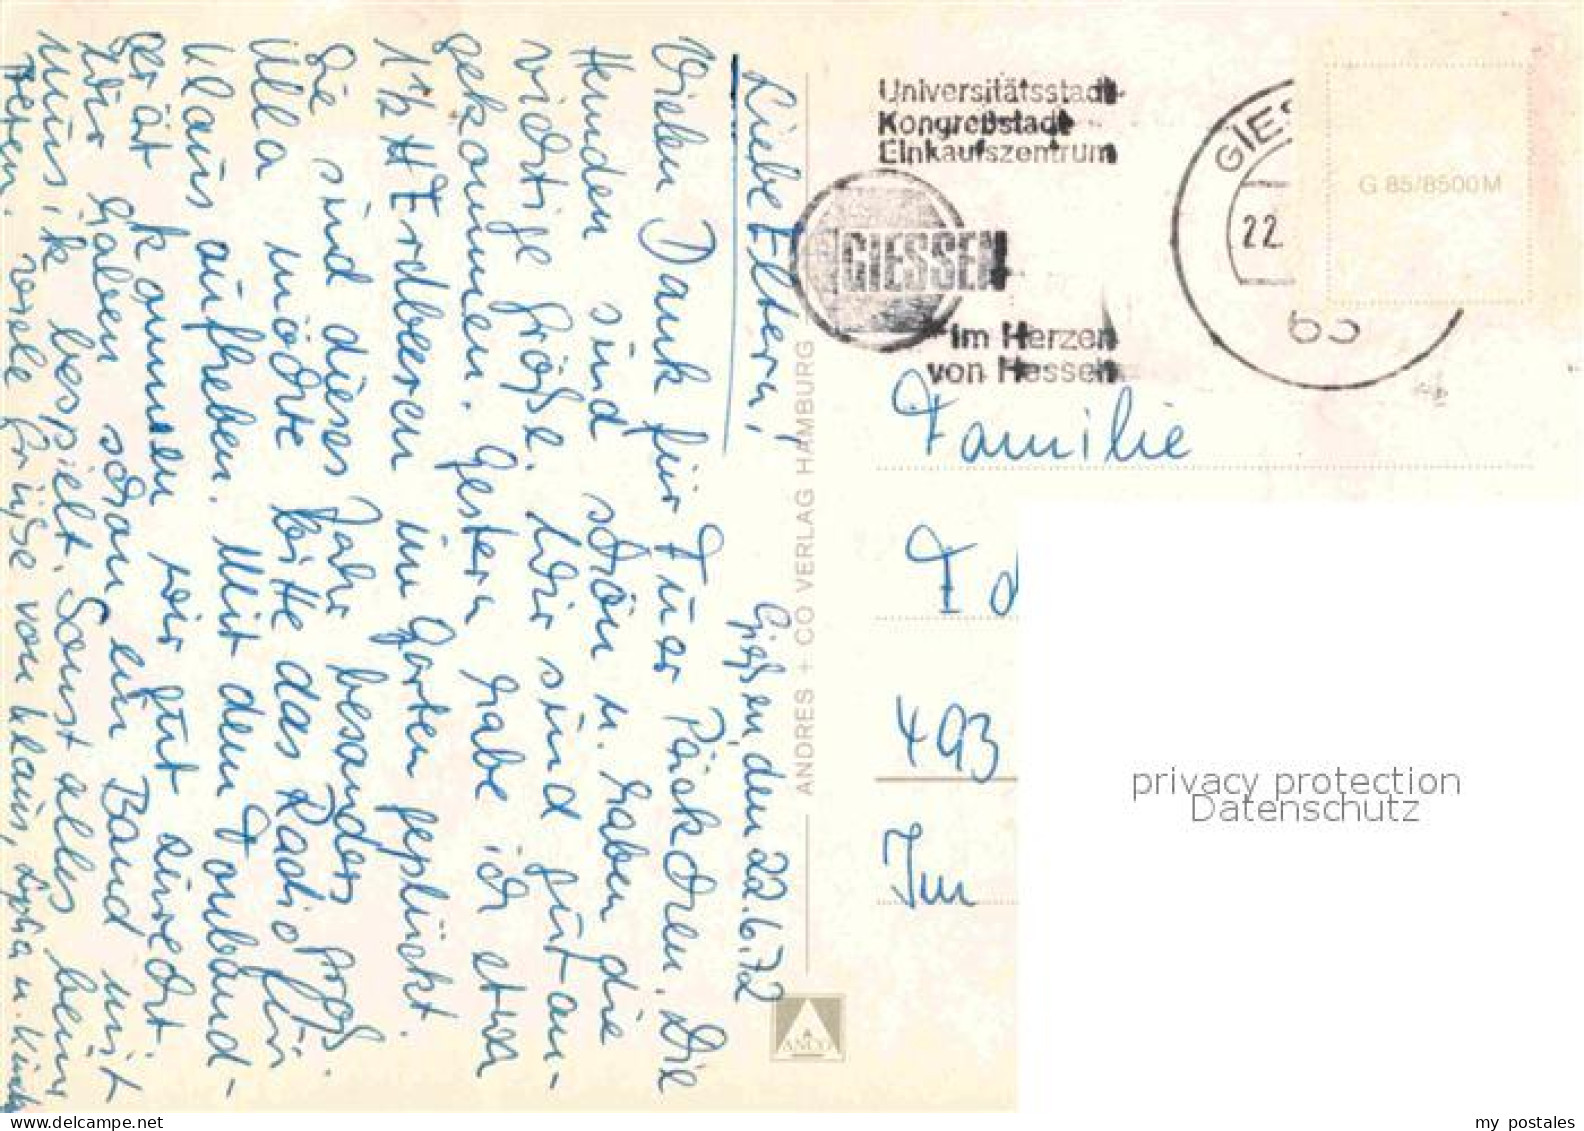 Gießen, den 22.6.72
Liebe Eltern!
Vielen Dank für Euer Päckchen. Die
Hemden sind schön u. haben die
richtige Größe. Wir sind gut an-
gekommen. Gestern habe ich etwa
1½ ℔ Erdbeeren im Garten gepflückt.
Sie sind dieses Jahr besonders groß.
Ulla möchte bitte das Radio für
Klaus aufheben. Mit dem Tonband-
gerät kommen wir gut zurecht.
Wir haben schon ein Band mit
Musik bespielt. Sonst alles beim
Alten. Viele Grüße von Klaus, Lydia u. Kinder
ANDRES + CO VERLAG HAMBURG
ANCO
Universitätsstadt
Kongreßstadt
Einkaufszentrum
GIESSEN
Im Herzen
von Hessen
GIES
22.
63
G 85/8500M
Familie
Ed
493
Im
privacy protection
Datenschutz
my postales